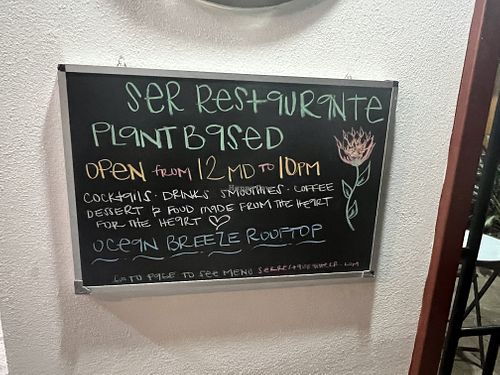 SER RESTAURANTE
PLANT BASED
OPEN FROM 12 MD TO 10PM
COCKTAILS · DRINKS SMOOTHIES · COFFEE
DESSERT & FOOD MADE FROM THE HEART
FOR THE HEART
OCEAN BREEZE ROOFTOP
GO TO PAGE TO SEE MENU